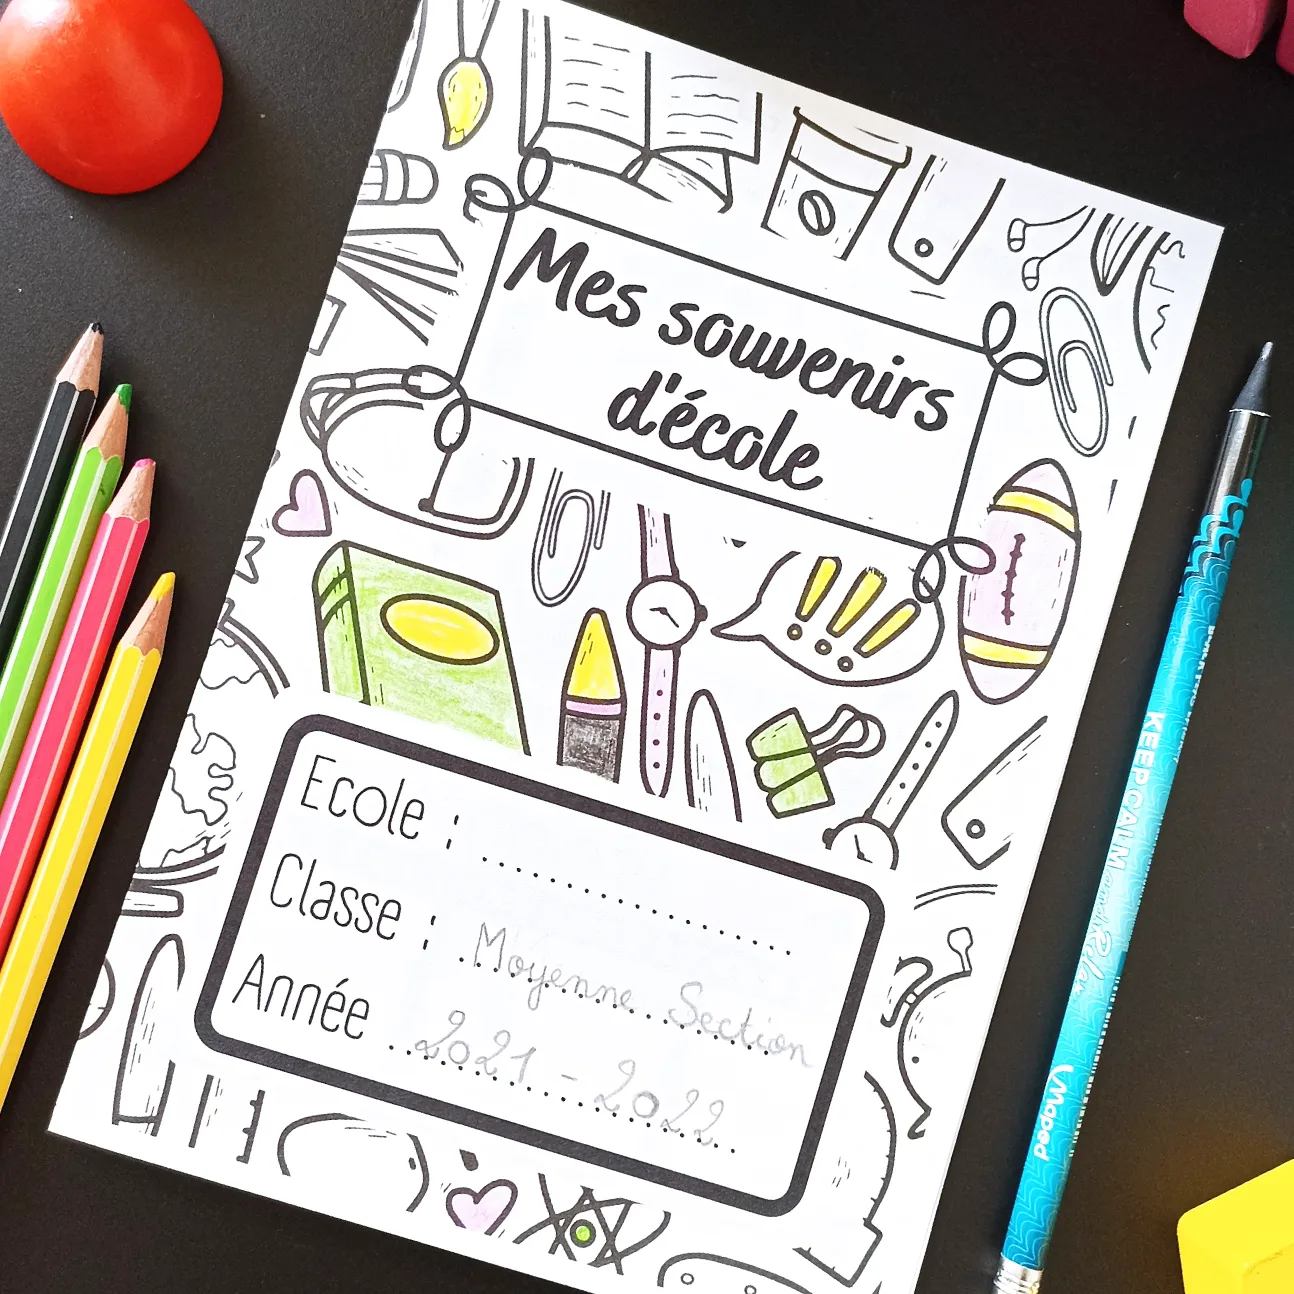 Mes souvenirs
d'école
Ecole : ..............................
Classe : Moyenne Section
Année 2021 - 2022
KEEP CALM and Relax
Maped